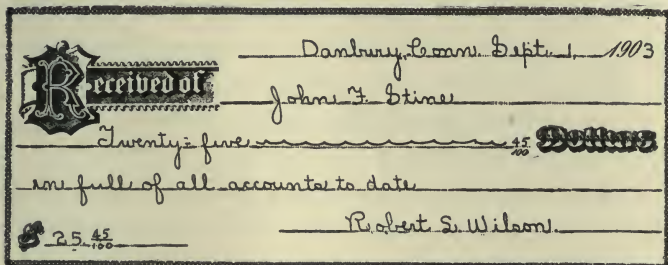 Danbury, Conn. Sept. 1, 1903
Received of
John F. Stine
Twenty-five 45/100 Dollars
in full of all accounts to date
Robert S. Wilson.
$ 25 45/100